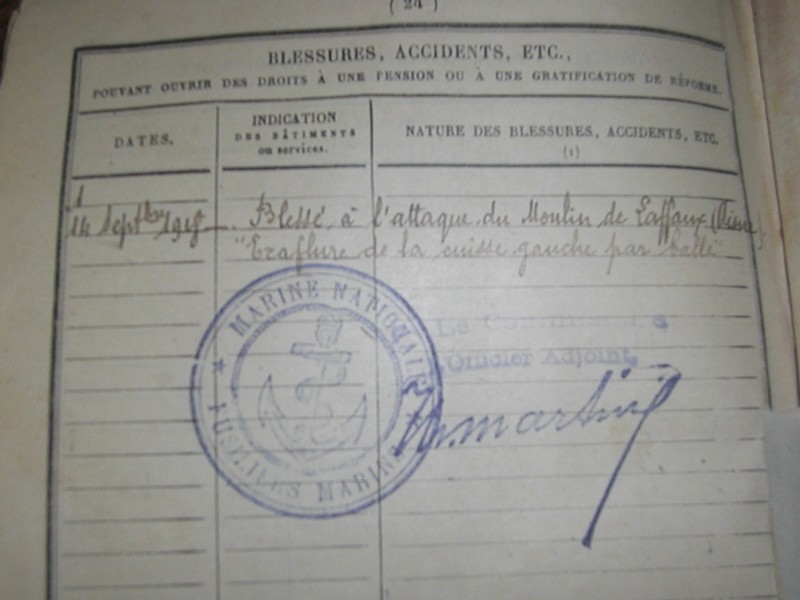 ( 24 )
BLESSURES, ACCIDENTS, ETC.,
POUVANT OUVRIR DES DROITS À UNE PENSION OU À UNE GRATIFICATION DE RÉFORME.
DATES.
INDICATION
DES BÂTIMENTS
ou services.
NATURE DES BLESSURES, ACCIDENTS, ETC.
(1)
1
14 Septbre 1918 _ Blessé à l'attaque du Moulin de Laffaux (Aisne).
"Eraflure de la cuisse gauche par balle"
MARINE NATIONALE
FUSILIERS MARINS
Le Commissaire
Officier Adjoint,